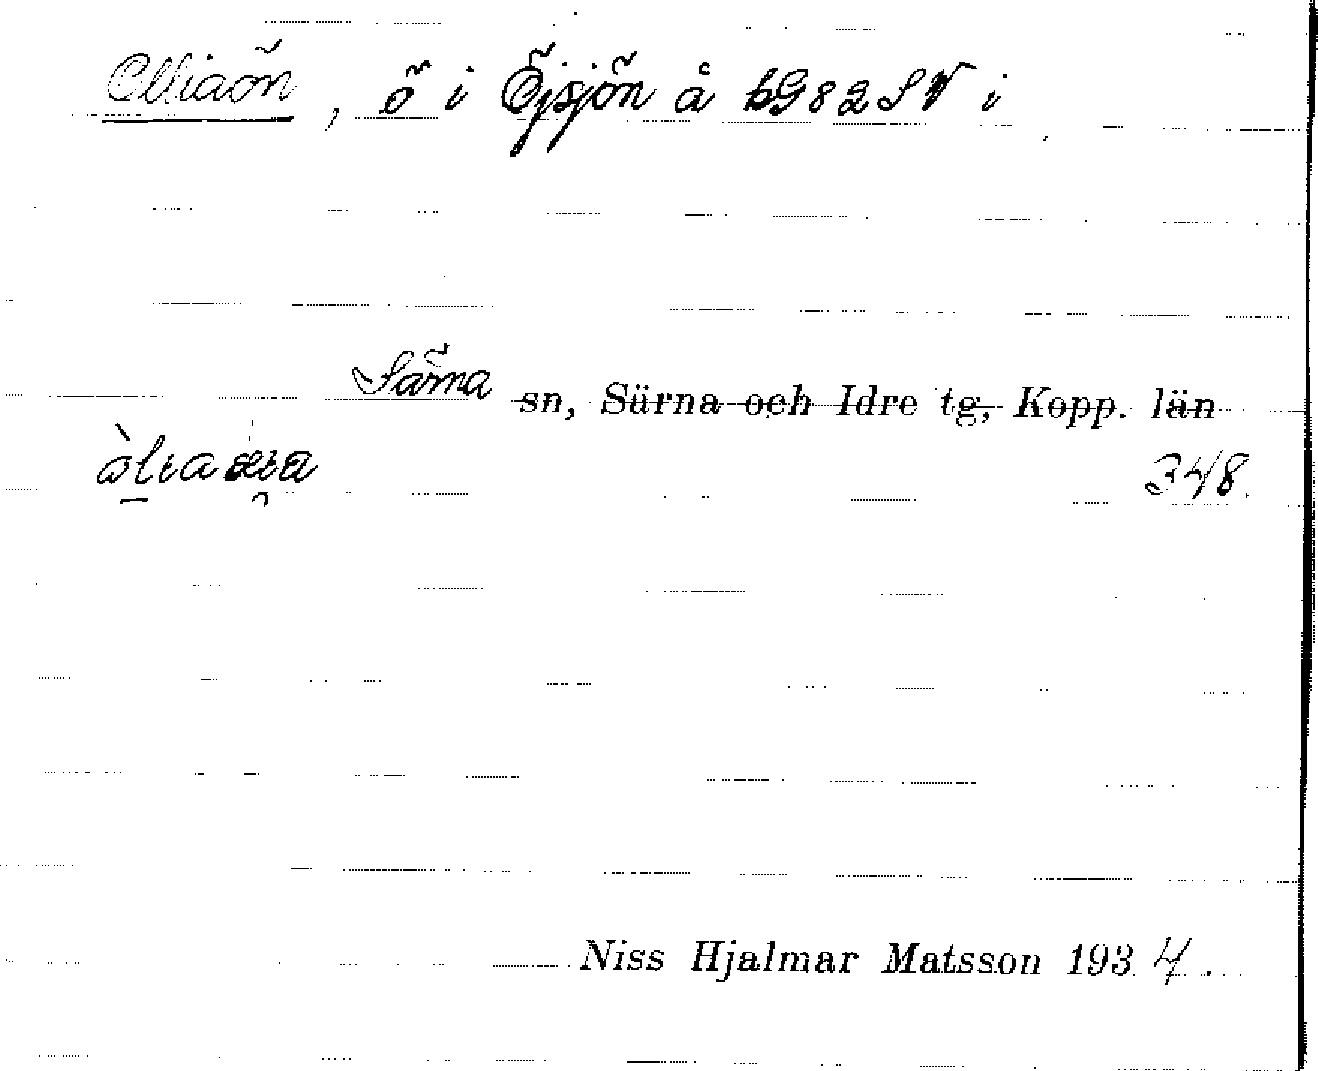 Olliaön, ö i Öjsjön å bG82SV i
Särna sn, Särna och Idre tg, Kopp. län
348.
Niss Hjalmar Matsson 1934.